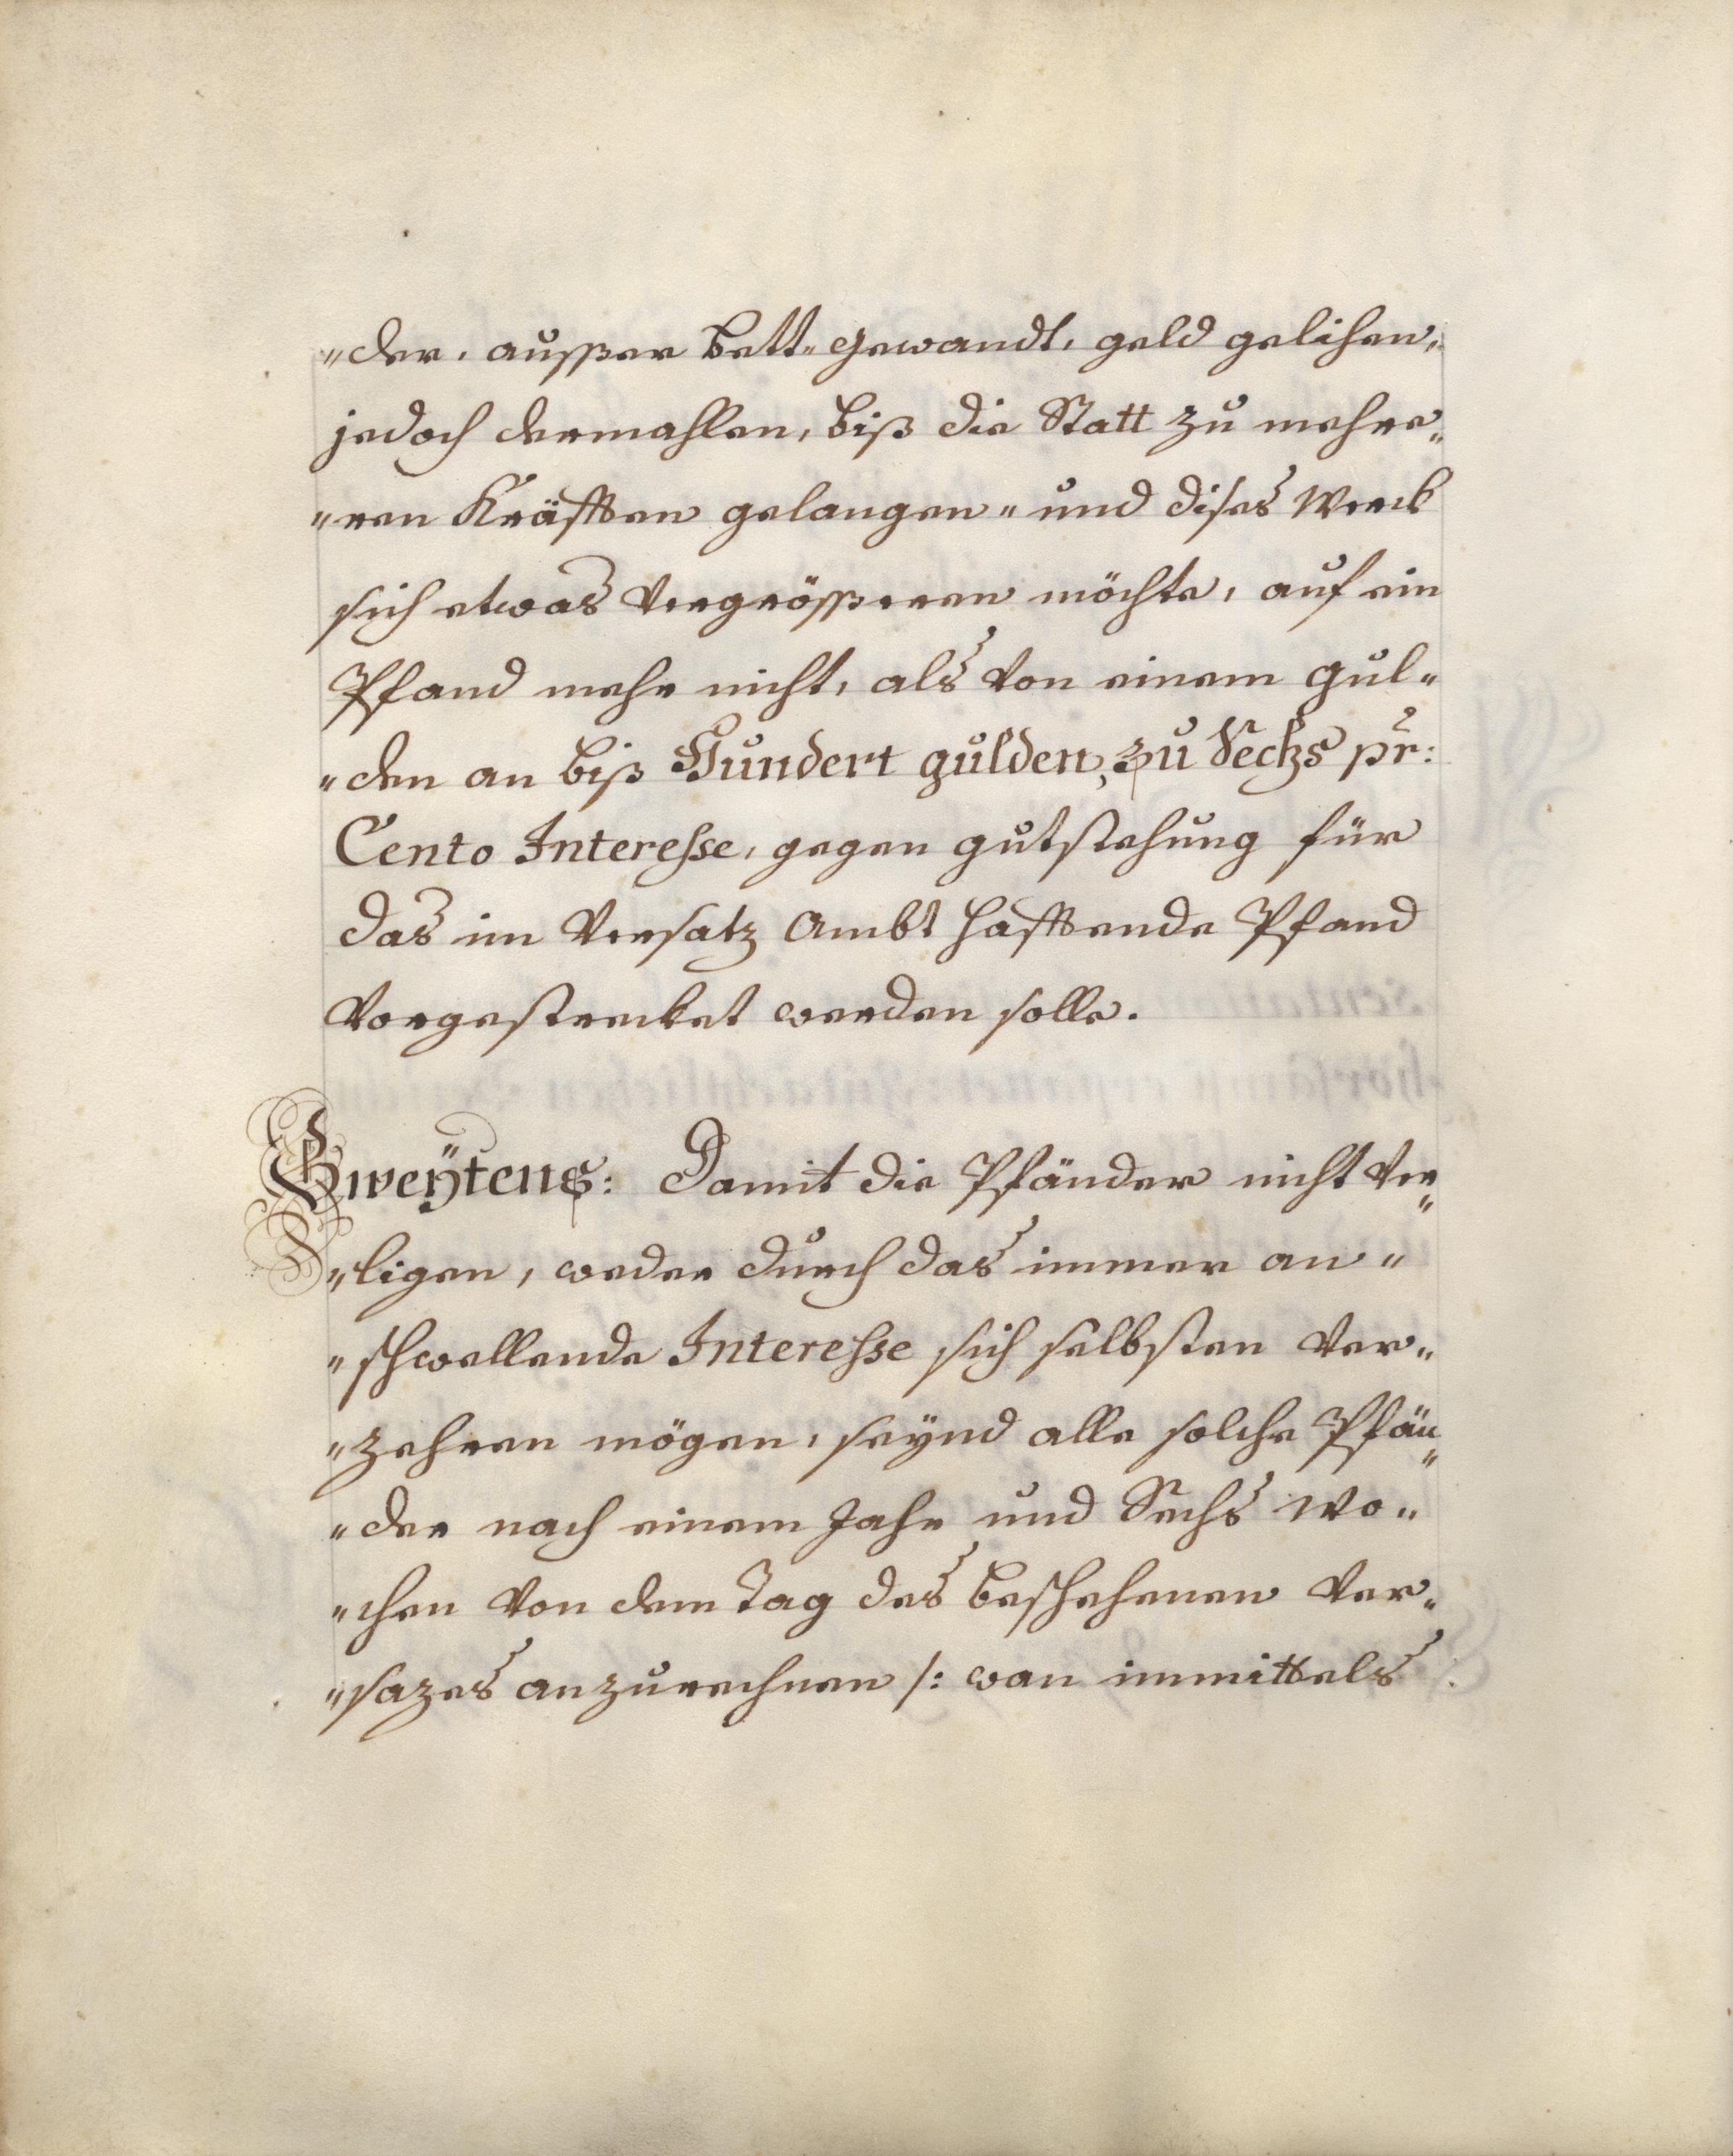 „der, ausser bett„gewandt, geld gelihen,
jedoch dermahlen, biß die Statt zu mehre„
„ren Kräfften gelangen„ und dises Werck
sich etwas vergrösseren möchte, auf ein
Pfand mehr nicht, als von einem gul„
„den an biß Hundert gulden, zu Sechs pr:
Cento Interesse, gegen gutstehung für
das im Versatz Ambt hafftende Pfand
vorgestrecket werden solle.
Zweÿtens: Damit die Pfänder nicht ver„
„ligen, weder durch das immer an„
„schwellende Interesse sich selbsten ver„
„zehren mögen, seÿnd alle solche Pfän„
„der nach einem Jahr und Sechs Wo„
„chen von dem Tag des beschehenen Ver„
„sazes anzurechnen /: wan immittels